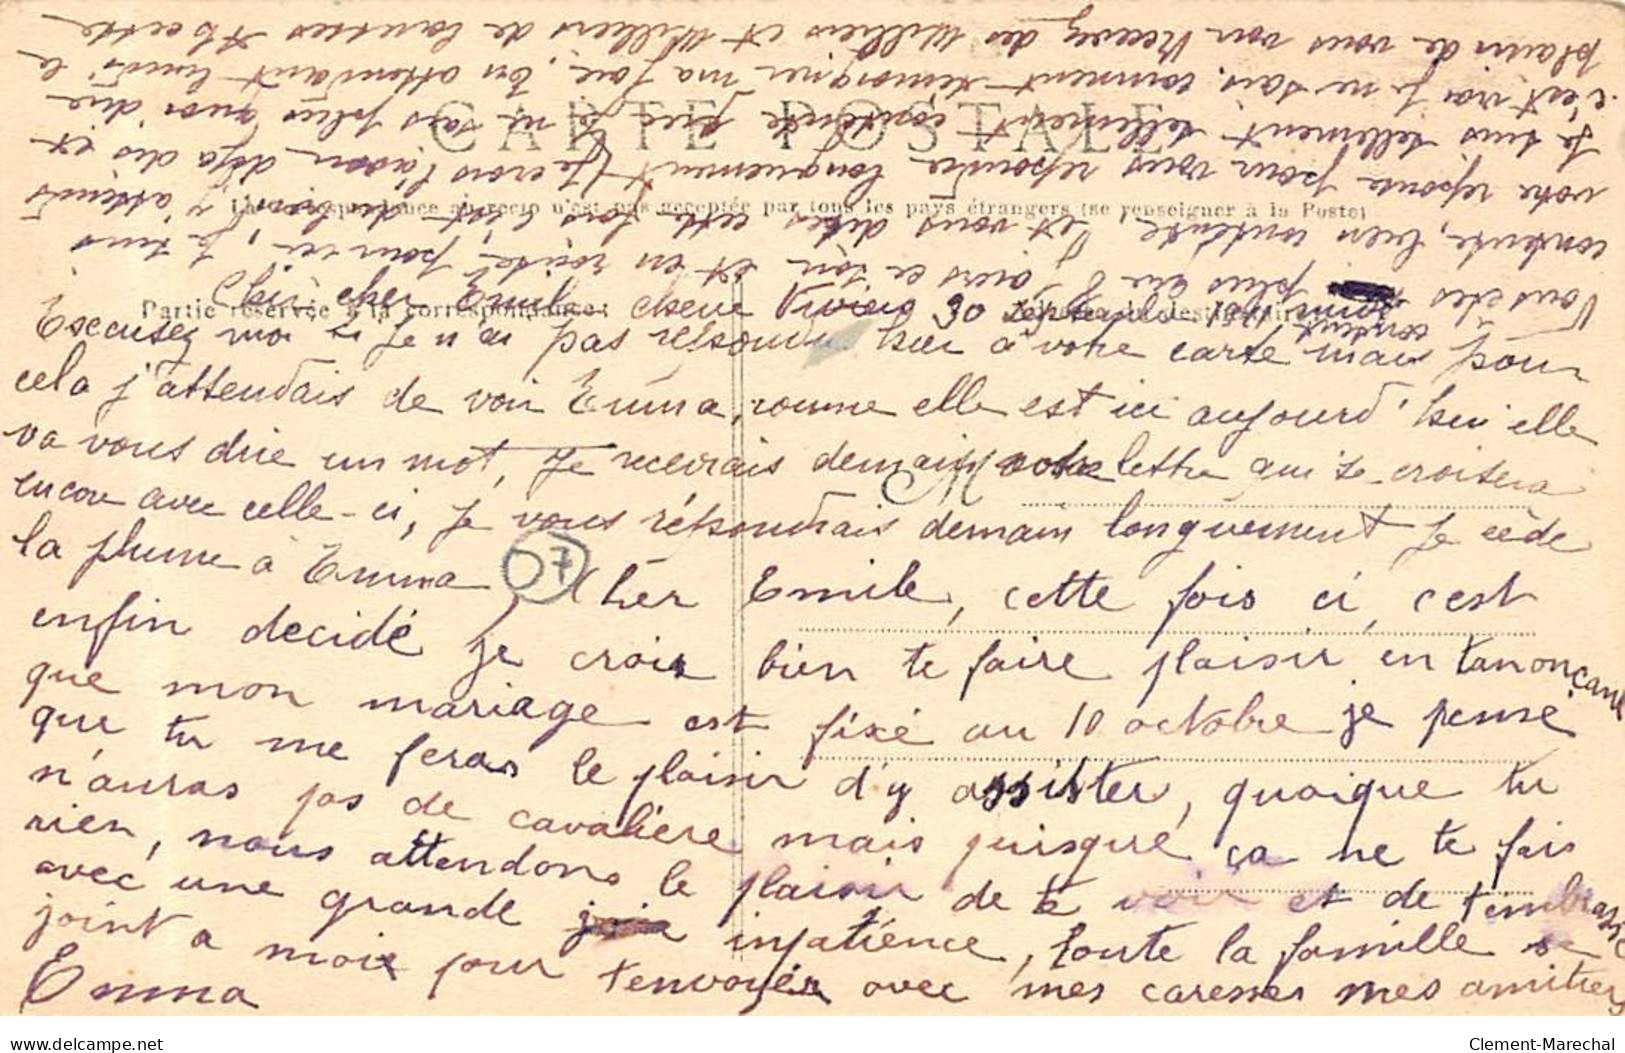 CARTE POSTALE
La correspondance au recto n'est pas acceptée par tous les pays étrangers (se renseigner à la Poste)
Partie réservée à la correspondance:
Viviers 30 septembre 1911
cher Emile
Escusez moi si je n'ai pas réspondu hier à votre carte mais pour
cela j'attendais de voir Emma, comme elle est ici aujourd'hui elle
va vous dire un mot, Je receivrais demain votre lettre qui se croisera
encore avec celle-ci, Je vous réspondrais demain longuement Je cède
la plume à Emma Cher Emile, cette fois ci, c'est
enfin decidé je crois bien te faire plaisir en t'anonçant
que mon mariage est fixé au 10 octobre je pense
que tu me feras le plaisir d'y assister, quoique tu
n'auras pas de cavalière mais puisque ça ne te fais
rien, nous attendons le plaisir de te voir et de t'embrasser
avec une grande impatience, toute la famille se
joint a moi pour t'envoyer avec mes caresses mes amitiés
Emma
07
M
Vous etes
contente, bien contente, et vous dites cette fois c'est decidé, j'y attends
votre reponse pour vous repondre longuement (je crois l'avoir deja dis
Je suis tellement tellement contente que je ne sais plus quoi dire
c'est vrai je ne sais comment temoigner ma joie. En attendant lundi le
plaisir de vous voir Recevez des Milliers et Milliers de
delcampe.net
Clement-Marechal